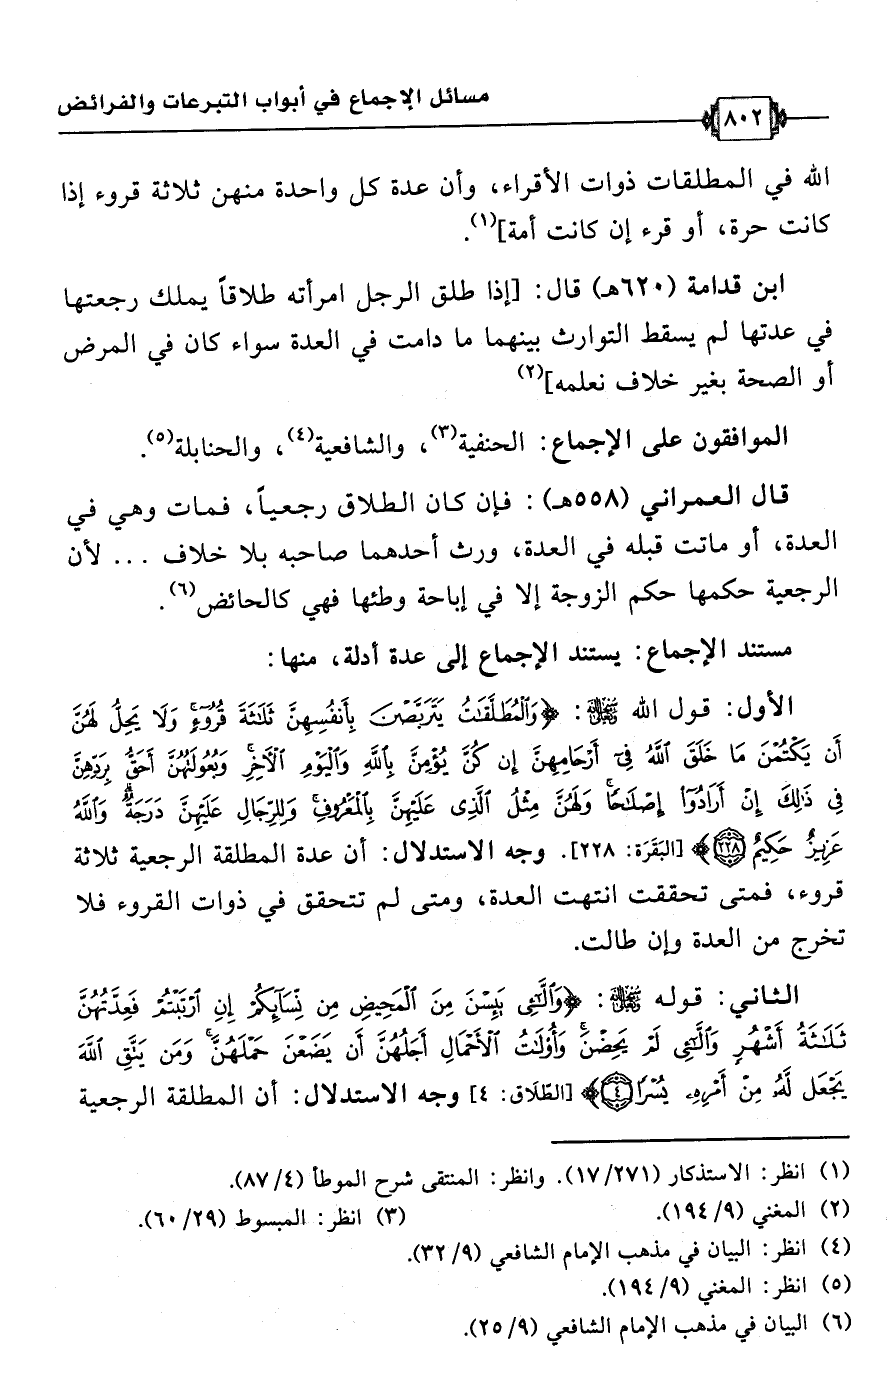 مسائل الإجماع في أبواب التبرعات والفرائض
٨٠٢
الله في المطلقات ذوات الأقراء، وأن عدة كل واحدة منهن ثلاثة قروء إذا
كانت حرة، أو قرء إن كانت أمة](١).
ابن قدامة (٦٢٠هـ) قال: [إذا طلق الرجل امرأته طلاقاً يملك رجعتها
في عدتها لم يسقط التوارث بينهما ما دامت في العدة سواء كان في المرض
أو الصحة بغير خلاف نعلمه](٢)
الموافقون على الإجماع: الحنفية(٣)، والشافعية(٤)، والحنابلة(٥).
قال العمراني (٥٥٨هـ) : فإن كان الطلاق رجعياً، فمات وهي في
العدة، أو ماتت قبله في العدة، ورث أحدهما صاحبه بلا خلاف ... لأن
الرجعية حكمها حكم الزوجة إلا في إباحة وطئها فهي كالحائض(٦).
مستند الإجماع: يستند الإجماع إلى عدة أدلة، منها:
الأول: قول الله ﷻ: ﴿وَٱلْمُطَلَّقَٰتُ يَتَرَبَّصْنَ بِأَنفُسِهِنَّ ثَلَٰثَةَ قُرُوٓءٍۚ وَلَا يَحِلُّ لَهُنَّ
أَن يَكْتُمْنَ مَا خَلَقَ ٱللَّهُ فِىٓ أَرْحَامِهِنَّ إِن كُنَّ يُؤْمِنَّ بِٱللَّهِ وَٱلْيَوْمِ ٱلْـَٔاخِرِۚ وَبُعُولَتُهُنَّ أَحَقُّ بِرَدِّهِنَّ
فِى ذَٰلِكَ إِنْ أَرَادُوٓا۟ إِصْلَٰحًاۚ وَلَهُنَّ مِثْلُ ٱلَّذِى عَلَيْهِنَّ بِٱلْمَعْرُوفِۚ وَلِلرِّجَالِ عَلَيْهِنَّ دَرَجَةٌۗ وَٱللَّهُ
عَزِيزٌ حَكِيمٌ ٢٢٨﴾ [البَقَرَة: ٢٢٨]. وجه الاستدلال: أن عدة المطلقة الرجعية ثلاثة
قروء، فمتى تحققت انتهت العدة، ومتى لم تتحقق في ذوات القروء فلا
تخرج من العدة وإن طالت.
الثاني: قوله ﷻ: ﴿وَٱلَّٰٓـِٔى يَئِسْنَ مِنَ ٱلْمَحِيضِ مِن نِّسَآئِكُمْ إِنِ ٱرْتَبْتُمْ فَعِدَّتُهُنَّ
ثَلَٰثَةُ أَشْهُرٍ وَٱلَّٰٓـِٔى لَمْ يَحِضْنَۚ وَأُو۟لَٰتُ ٱلْأَحْمَالِ أَجَلُهُنَّ أَن يَضَعْنَ حَمْلَهُنَّۚ وَمَن يَتَّقِ ٱللَّهَ
يَجْعَل لَّهُۥ مِنْ أَمْرِهِۦ يُسْرًا ٤﴾ [الطّلَاق: ٤] وجه الاستدلال: أن المطلقة الرجعية
(١) انظر: الاستذكار (١٧/٢٧١). وانظر: المنتقى شرح الموطأ (٨٧/٤).
(٢) المغني (١٩٤/٩). (٣) انظر: المبسوط (٦٠/٢٩).
(٤) انظر: البيان في مذهب الإمام الشافعي (٣٢/٩).
(٥) انظر: المغني (١٩٤/٩).
(٦) البيان في مذهب الإمام الشافعي (٢٥/٩).